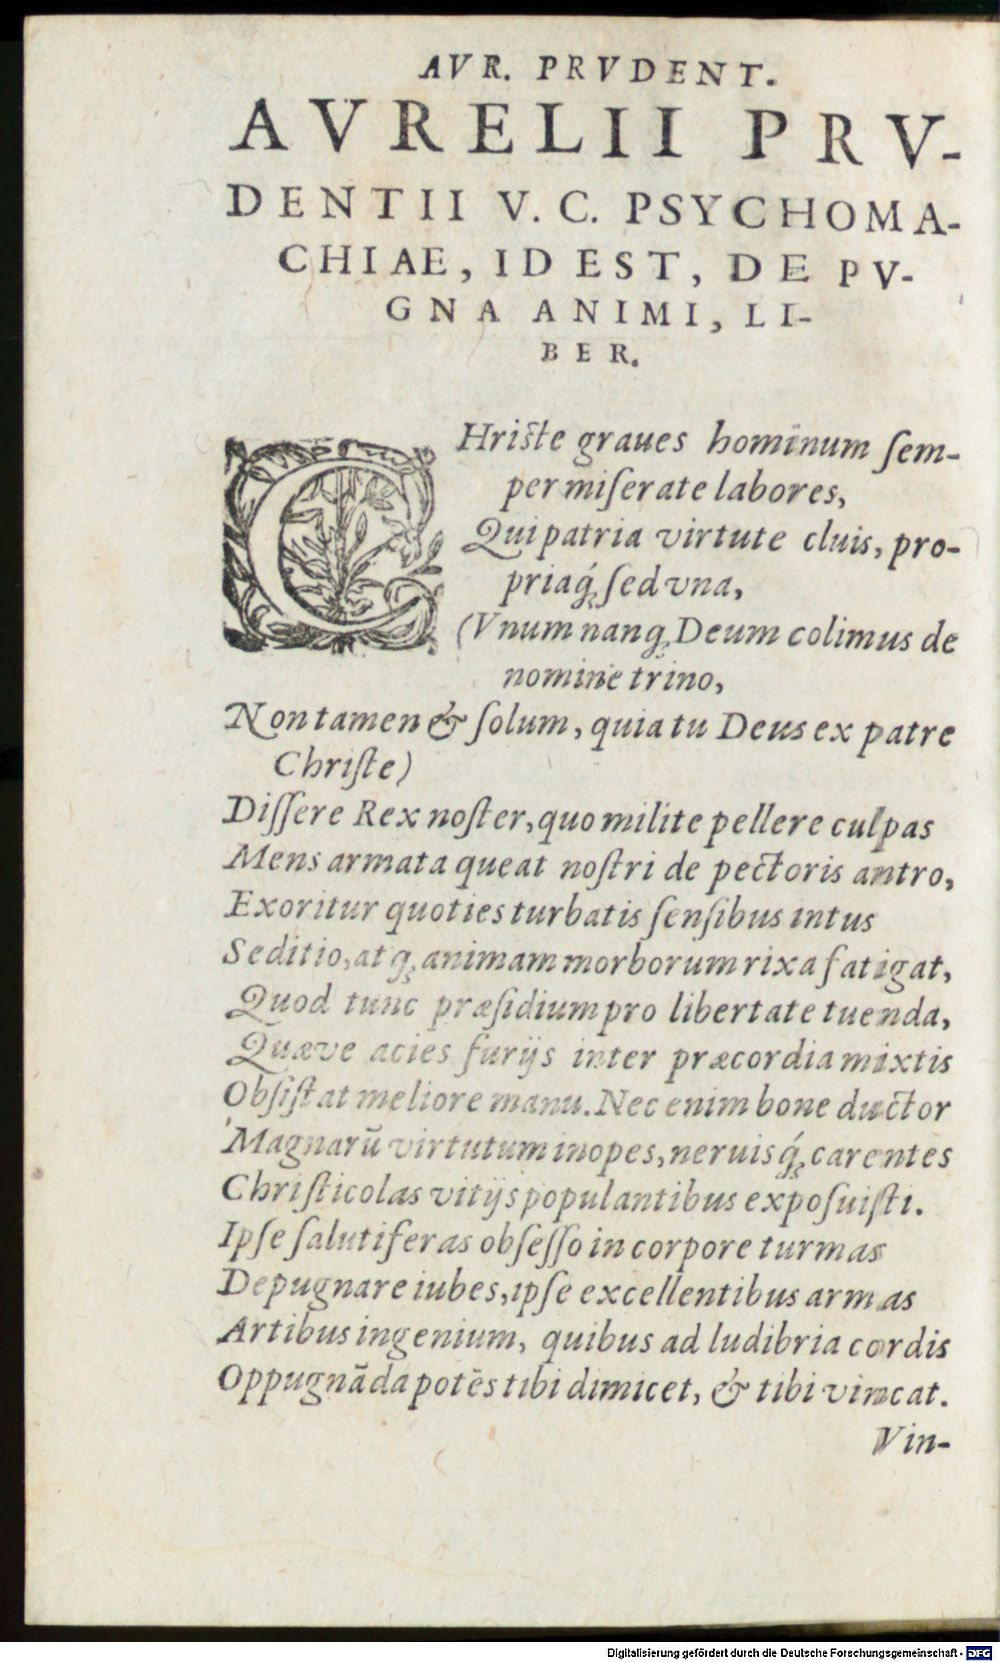 AVR. PRVDENT.
AVRELII PRV-
DENTII V.C. PSYCHOMA-
CHIAE, ID EST, DE PV-
GNA ANIMI, LI-
BER.
CHriſte graues hominum ſem-
per miſerate labores,
Qui patria virtute cluis, pro-
priaq́; ſed vna,
(Vnum nanq; Deum colimus de
nomine trino,
Non tamen & ſolum, quia tu Deus ex patre
Chriſte)
Diſſere Rex noſter, quo milite pellere culpas
Mens armata queat noſtri de pectoris antro,
Exoritur quoties turbatis ſenſibus intus
Seditio, atq; animam morborum rixa fatigat,
Quod tunc præſidium pro libertate tuenda,
Quæve acies furijs inter præcordia mixtis
Obſiſtat meliore manu. Nec enim bone ductor
Magnarũ virtutum inopes, neruisq́; carentes
Chriſticolas vitijs populantibus expoſuiſti.
Ipſe ſalutiferas obſeſſo in corpore turmas
Depugnare iubes, ipſe excellentibus armas
Artibus ingenium, quibus ad ludibria cordis
Oppugnãda potẽs tibi dimicet, & tibi vincat.
Vin-
Digitalisierung gefördert durch die Deutsche Forschungsgemeinschaft - DFG